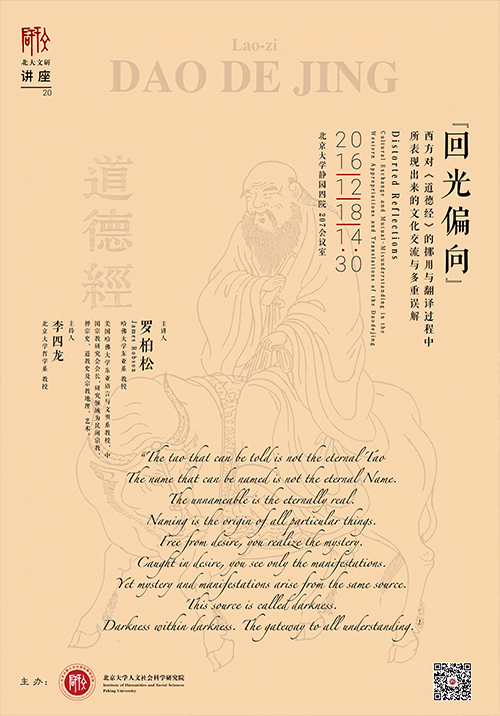 北大文研
讲座
20
Lao-zi
DAO DE JING
道德經
『回光偏向』
西方对《道德经》的挪用与翻译过程中
所表现出来的文化交流与多重误解
Distorted Reflections
Cultural Exchange and Mutual-Misunderstanding in the
Western Appropriations and Translations of the Daodejing
2016
12
18
14:30
北京大学静园四院 207会议室
主讲人
罗柏松
James Robson
哈佛大学东亚系 教授
美国哈佛大学东亚语言与文明系教授、中
国宗教研究会会长,研究领域为民间宗教、
禅宗史、道教史及宗教地理、艺术。
主持人
李四龙
北京大学哲学系 教授
“The tao that can be told is not the eternal Tao
The name that can be named is not the eternal Name.
The unnameable is the eternally real.
Naming is the origin of all particular things.
Free from desire, you realize the mystery.
Caught in desire, you see only the manifestations.
Yet mystery and manifestations arise from the same source.
This source is called darkness.
Darkness within darkness. The gateway to all understanding.”
主办：
北京大学人文社会科学研究院
Institute of Humanities and Social Sciences
Peking University